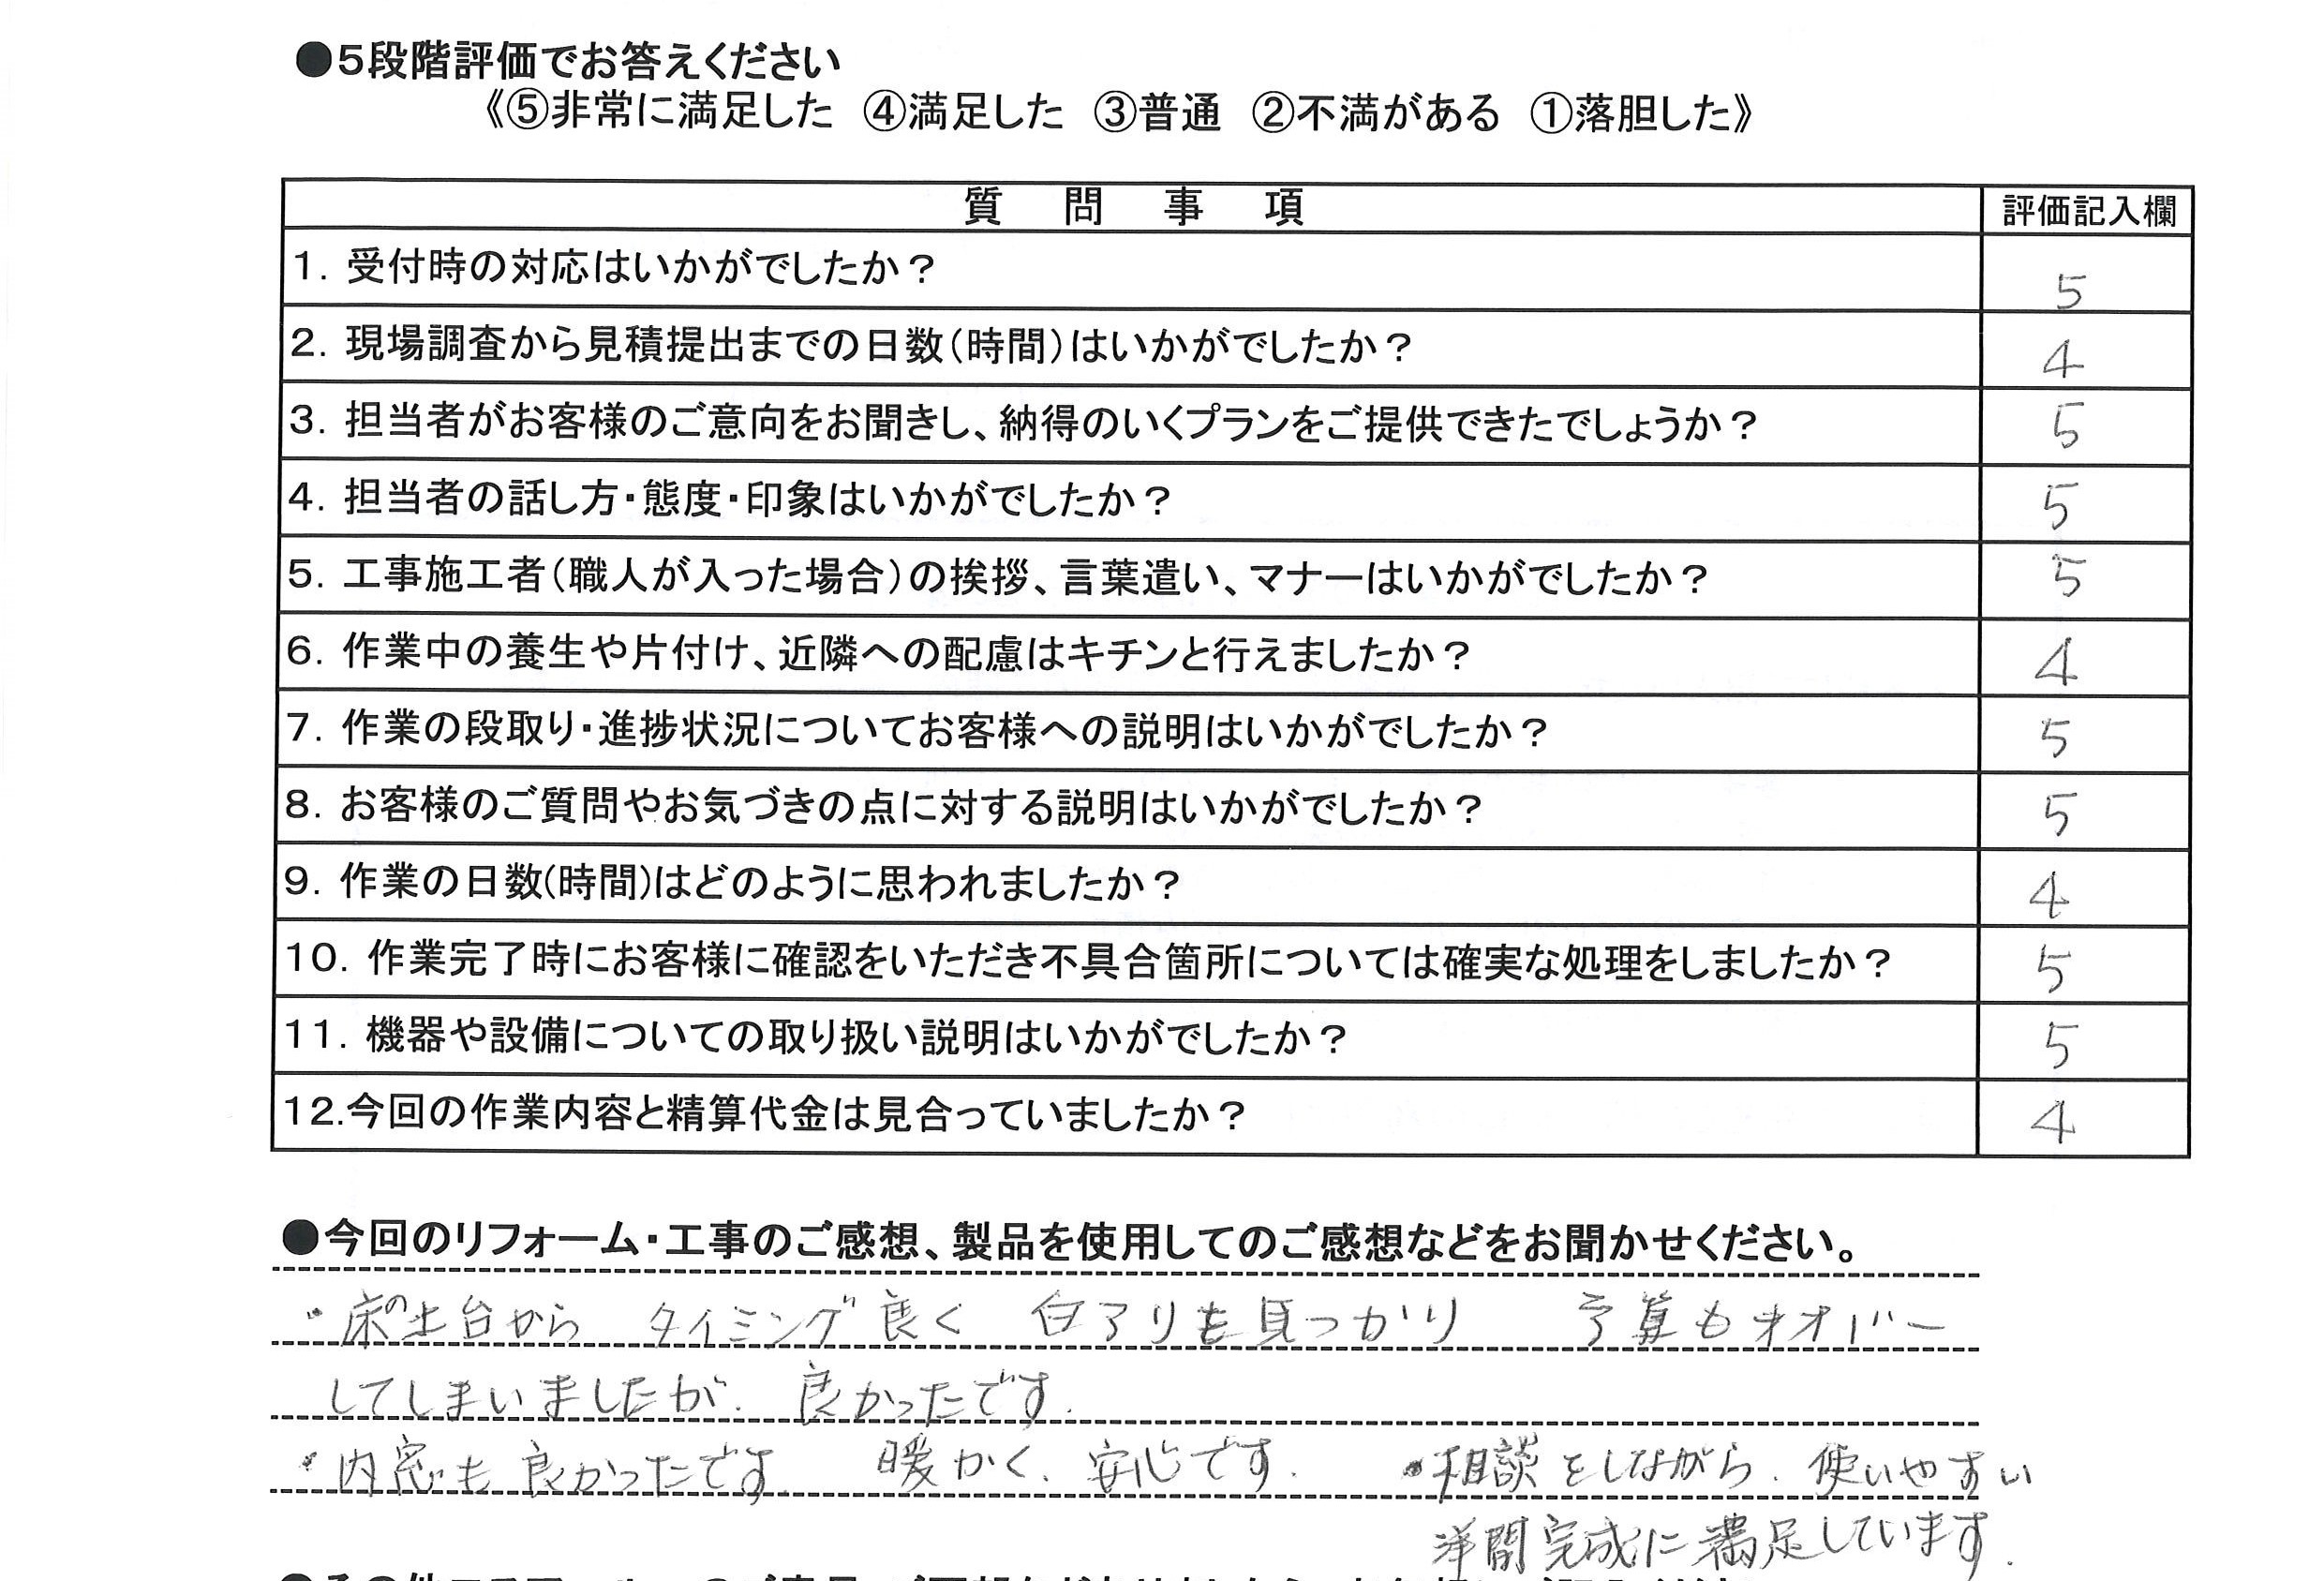 ●5段階評価でお答えください
《⑤非常に満足した ④満足した ③普通 ②不満がある ①落胆した》
質問事項 評価記入欄
1. 受付時の対応はいかがでしたか？ 5
2. 現場調査から見積提出までの日数(時間)はいかがでしたか？ 4
3. 担当者がお客様のご意向をお聞きし、納得のいくプランをご提供できたでしょうか？ 5
4. 担当者の話し方・態度・印象はいかがでしたか？ 5
5. 工事施工者(職人が入った場合)の挨拶、言葉遣い、マナーはいかがでしたか？ 5
6. 作業中の養生や片付け、近隣への配慮はキチンと行えましたか？ 4
7. 作業の段取り・進捗状況についてお客様への説明はいかがでしたか？ 5
8. お客様のご質問やお気づきの点に対する説明はいかがでしたか？ 5
9. 作業の日数(時間)はどのように思われましたか？ 4
10. 作業完了時にお客様に確認をいただき不具合箇所については確実な処理をしましたか？ 5
11. 機器や設備についての取り扱い説明はいかがでしたか？ 5
12.今回の作業内容と精算代金は見合っていましたか？ 4
●今回のリフォーム・工事のご感想、製品を使用してのご感想などをお聞かせください。
・床の土台から タイミング良く 白アリも見つかり 予算もオオバー
してしまいましたが. 良かったです.
・内窓も良かったです. 暖かく. 安心です. ・相談をしながら. 使いやすい
洋間完成に満足しています.